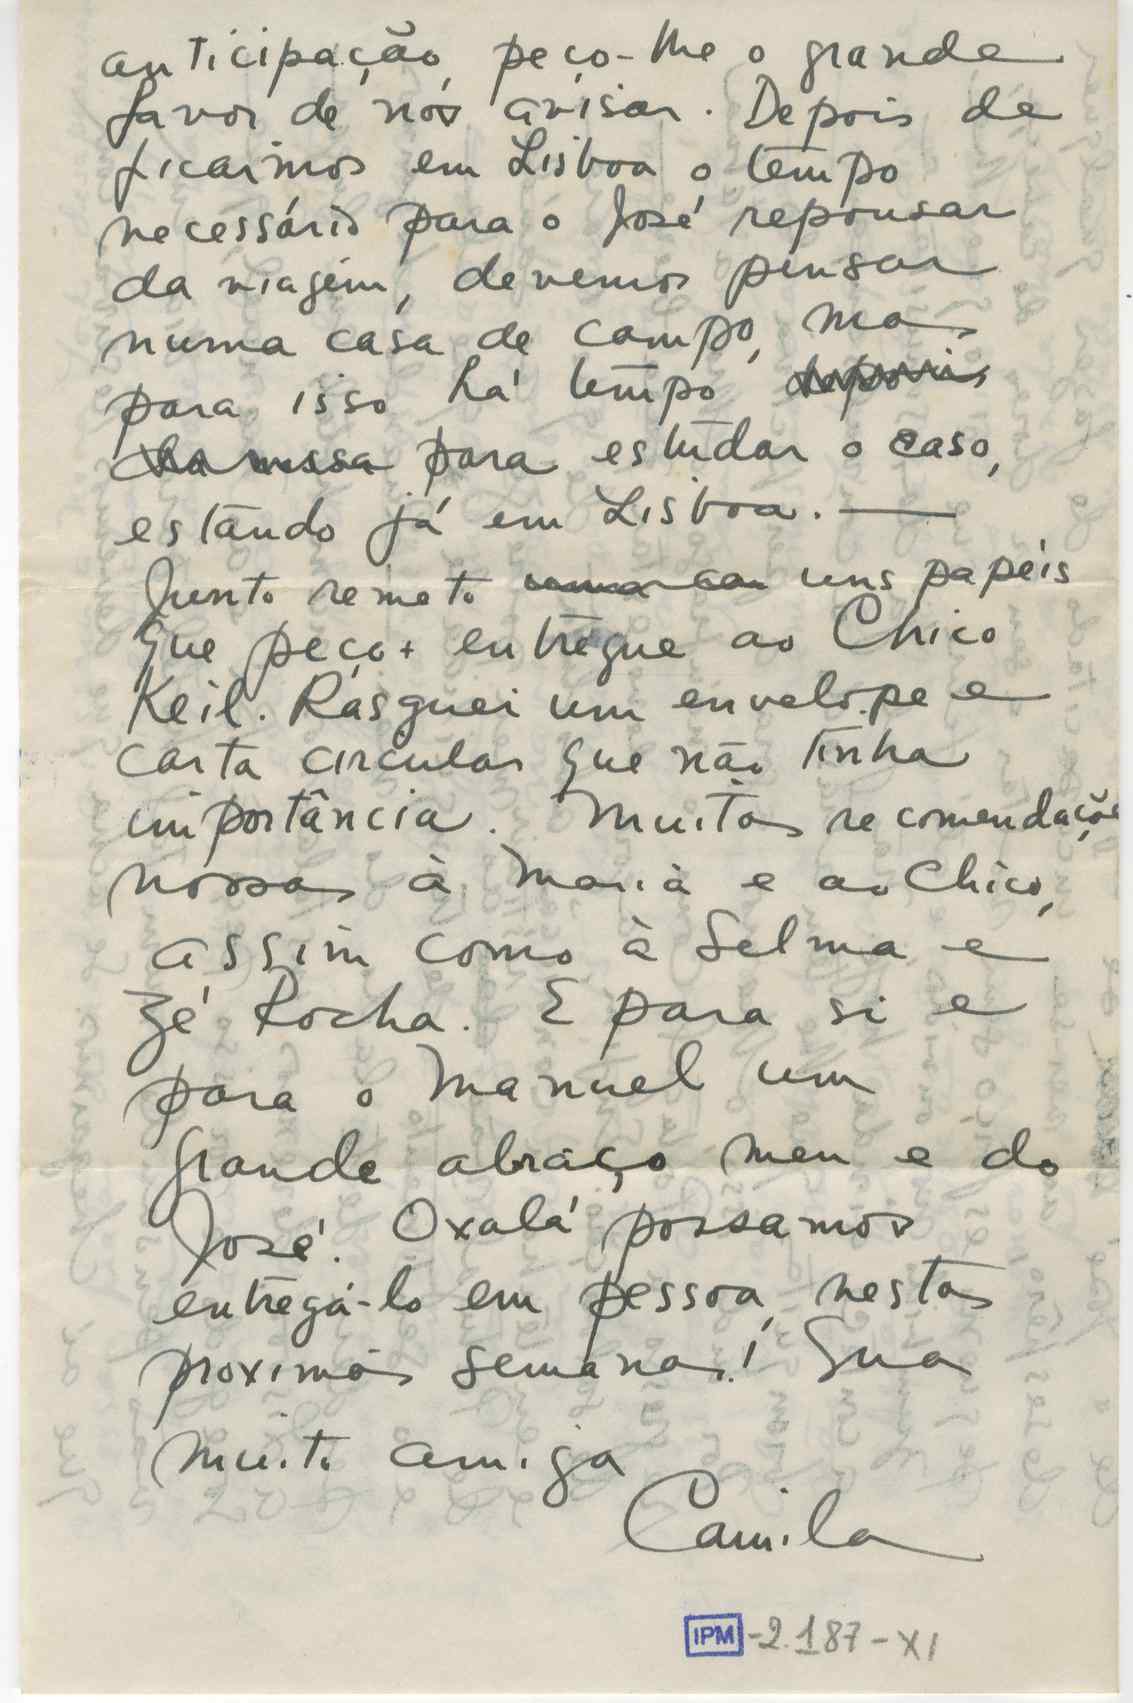 anticipação, peço-lhe o grande
favor de nos avisar. Depois de
ficarmos em Lisboa o tempo
necessário para o José repousar
da viagem, devemos pensar
numa casa de campo, mas
para isso há tempo depois
da nossa para estudar o caso,
estando já em Lisboa. —
Junto remeto uma ca uns papéis
que peço entregue ao Chico
Keil. Rasguei um envelope e
carta circular que não tinha
importância. Muitas recomendações
nossas à Maria e ao Chico,
assim como à Selma e
Zé Rocha. E para si e
para o Manuel um
grande abraço meu e do
José. Oxalá possamos
entregá-lo em pessoa, nestas
proximas semanas! Sua
muito amiga
Camila
IPM-2.187-XI